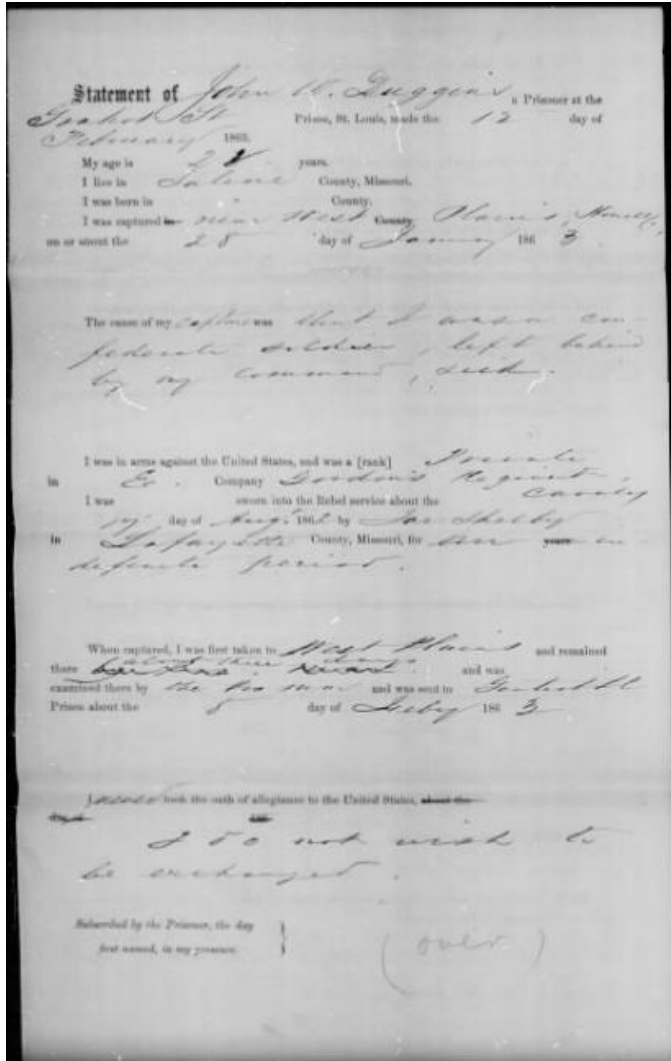 Statement of John W. Duggins a Prisoner at the
Gratiot St Prison, St. Louis, made the 12 day of
February 1863.
My age is 28 years.
I live in Saline County, Missouri.
I was born in " County.
I was captured in near West County Plains, Howell
on or about the 28 day of January 1863.
The cause of my capture was that I was a con-
federate soldier, left behind
by my command, sick.
I was in arms against the United States, and was a [rank] Private
in E. Company Gordon's Regiment,
Cavalry
I was sworn into the Rebel service about the
day of Aug. 1862 by Joe Shelby
in Lafayette County, Missouri, for an years in-
definite period.
When captured, I was first taken to West Plains and remained
about three
there and was
examined there by the and was sent to Gratiot St
Prison about the 8 day of Feby 1863
I never took the oath of allegiance to the United States, about the
I do not wish to
be exchanged.
Subscribed by the Prisoner, the day
first named, in my presence.
(over)